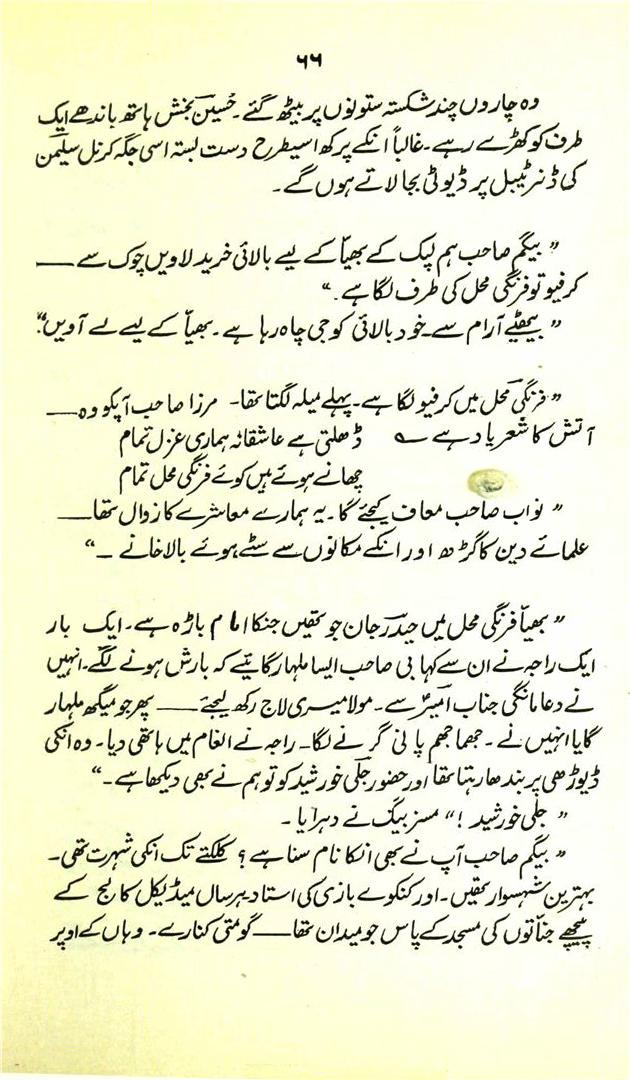 ۶۶
وہ چاروں چند شکستہ ستونوں پر بیٹھ گئے۔ حُسین بخش ہاتھ باندھے ایک
طرف کو کھڑے رہے۔ غالباً انکے پرکھ اسیطرح دست بستہ اسی جگہ کرنل سلیمن
کی ڈنر ٹیبل پر ڈیوٹی بجا لاتے ہوں گے۔
”بیگم صاحب ہم لپک کے بھیّا کے لیے بالائی خرید لاویں چوک سے ——
کرفیو تو فرنگی محل کی طرف لگا ہے۔“
”بیٹھیے آرام سے۔ خود بالائی کو جی چاہ رہا ہے۔ بھیّا کے لیے لے آویں“۔
”فرنگی محل میں کرفیو لگا ہے۔ پہلے میلہ لگتا تھا۔ مرزا صاحب آپکو وہ ——
آتش کا شعر یاد ہے ؎ ڈھلتی ہے عاشقانہ ہماری غزل تمام
چھانے ہوئے ہیں کوئے فرنگی محل تمام
”نواب صاحب معاف کیجئے گا۔ یہ ہمارے معاشرے کا زوال تھا ——
علمائے دین کا گڑھ اور انکے مکانوں سے سٹے ہوئے بالا خانے ۔“
”بھیّا فرنگی محل میں حیدر جان جو تھیں جنکا امام باڑہ ہے۔ ایک بار
ایک راجہ نے ان سے کہا بی صاحب ایسا ملہار گائیے کہ بارش ہونے لگے۔ انہیں
نے دعا مانگی جناب امیرؑ سے۔ مولا میری لاج رکھ لیجئے —— پھر جو میگھ ملہار
گایا انہیں نے۔ جھما جھم پانی گرنے لگا۔ راجہ نے انعام میں ہاتھی دیا۔ وہ انکی
ڈیوڑھی پر بندھا رہتا تھا اور حضور جلّی خورشید کو تو ہم نے بھی دیکھا ہے۔“
”جلی خورشید !“ مسز بیگ نے دہرایا۔
”بیگم صاحب آپ نے بھی انکا نام سنا ہے؟ کلکتے تک انکی شہرت تھی۔
بہترین شہسوار تھیں۔ اور کنکوے بازی کی استاد ہر سال میڈیکل کالج کے
پیچھے جنّاتوں کی مسجد کے پاس جو میدان تھا —— گومتی کنارے۔ وہاں کے اوپر